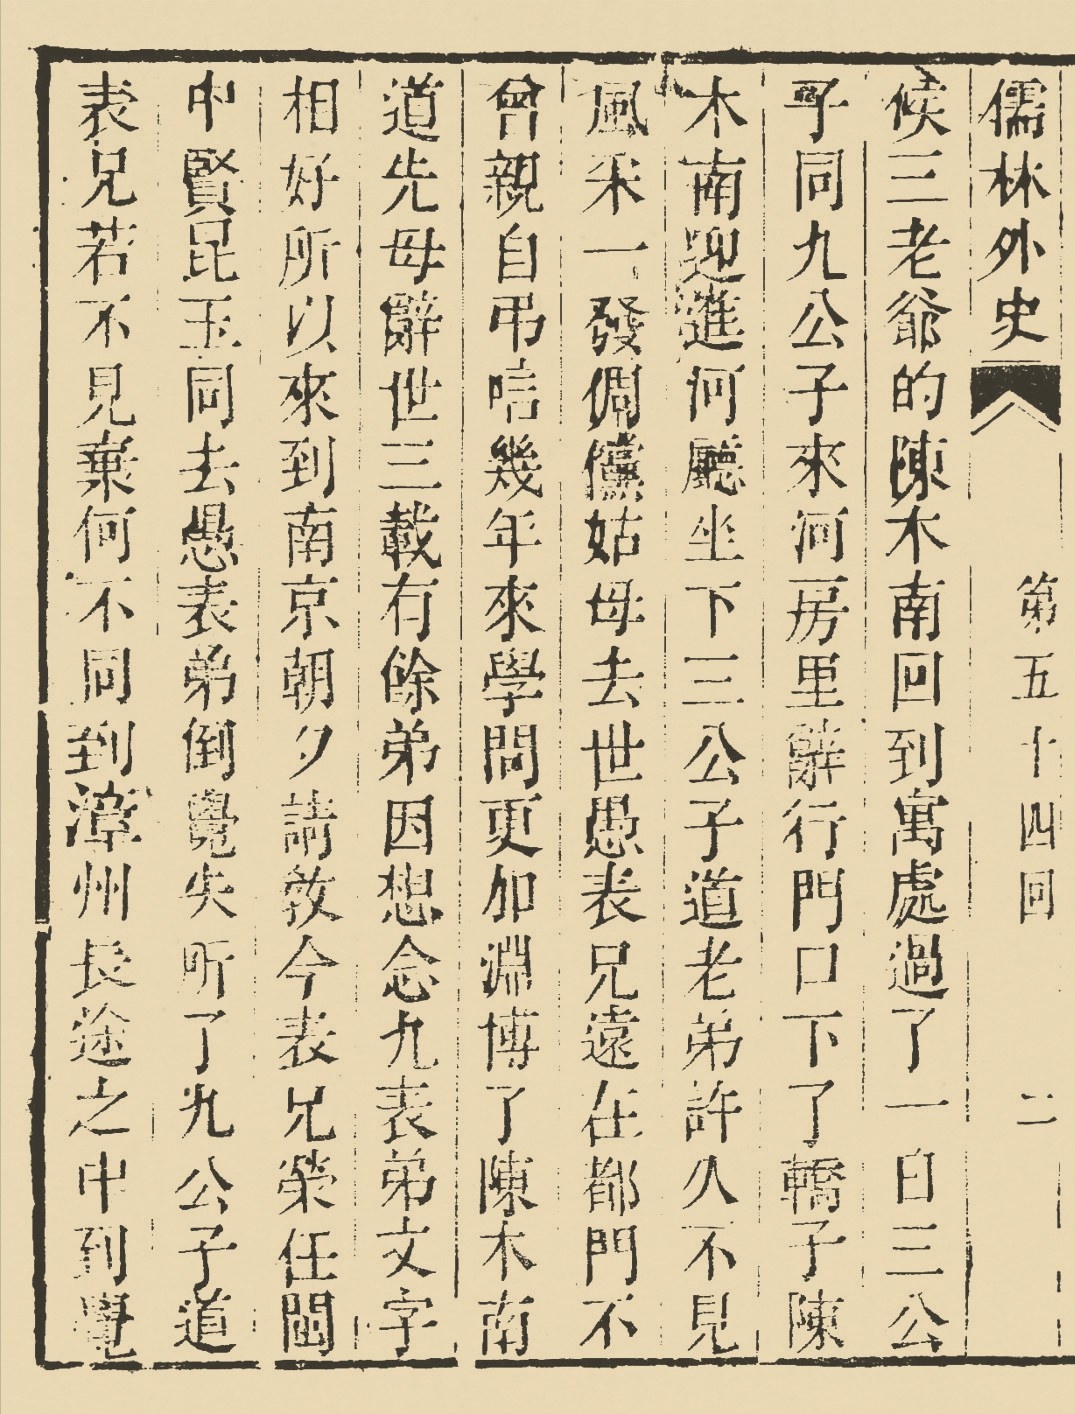 儒林外史 第五十四回 二
候三老爺的陳木南回到寓處過了一日三公
子同九公子來河房里辭行門口下了轎子陳
木南迎進河廳坐下三公子道老弟許久不見
風采一發倜儻姑母去世愚表兄遠在都門不
曾親自弔唁幾年來學問更加淵博了陳木南
道先母辭世三載有餘弟因想念九表弟文字
相好所以來到南京朝夕請教今表兄榮任閩
中賢昆玉同去愚表弟倒覺失所了九公子道
表兄若不見棄何不同到漳州長途之中到覺